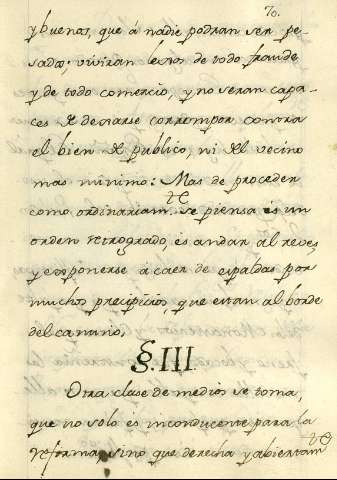 70.
y buenos, que á nadie podran ser pe-
sados; viviran lexos de todo fraude
y de todo comercio, y no seran capa-
ces de dexarse corromper contra
el bien del publico, ni del vecino
mas minimo: Mas de proceder
como ordinariam.te se piensa es un
orden retrogrado, es andar al reves,
y exponerse a caer de espaldas por
muchos precipicios, que estan al borde
del camino.
§. III.
Otra clase de medios se toma,
que no solo es inconducente para la
reforma, sino que derecha y abiertam.te